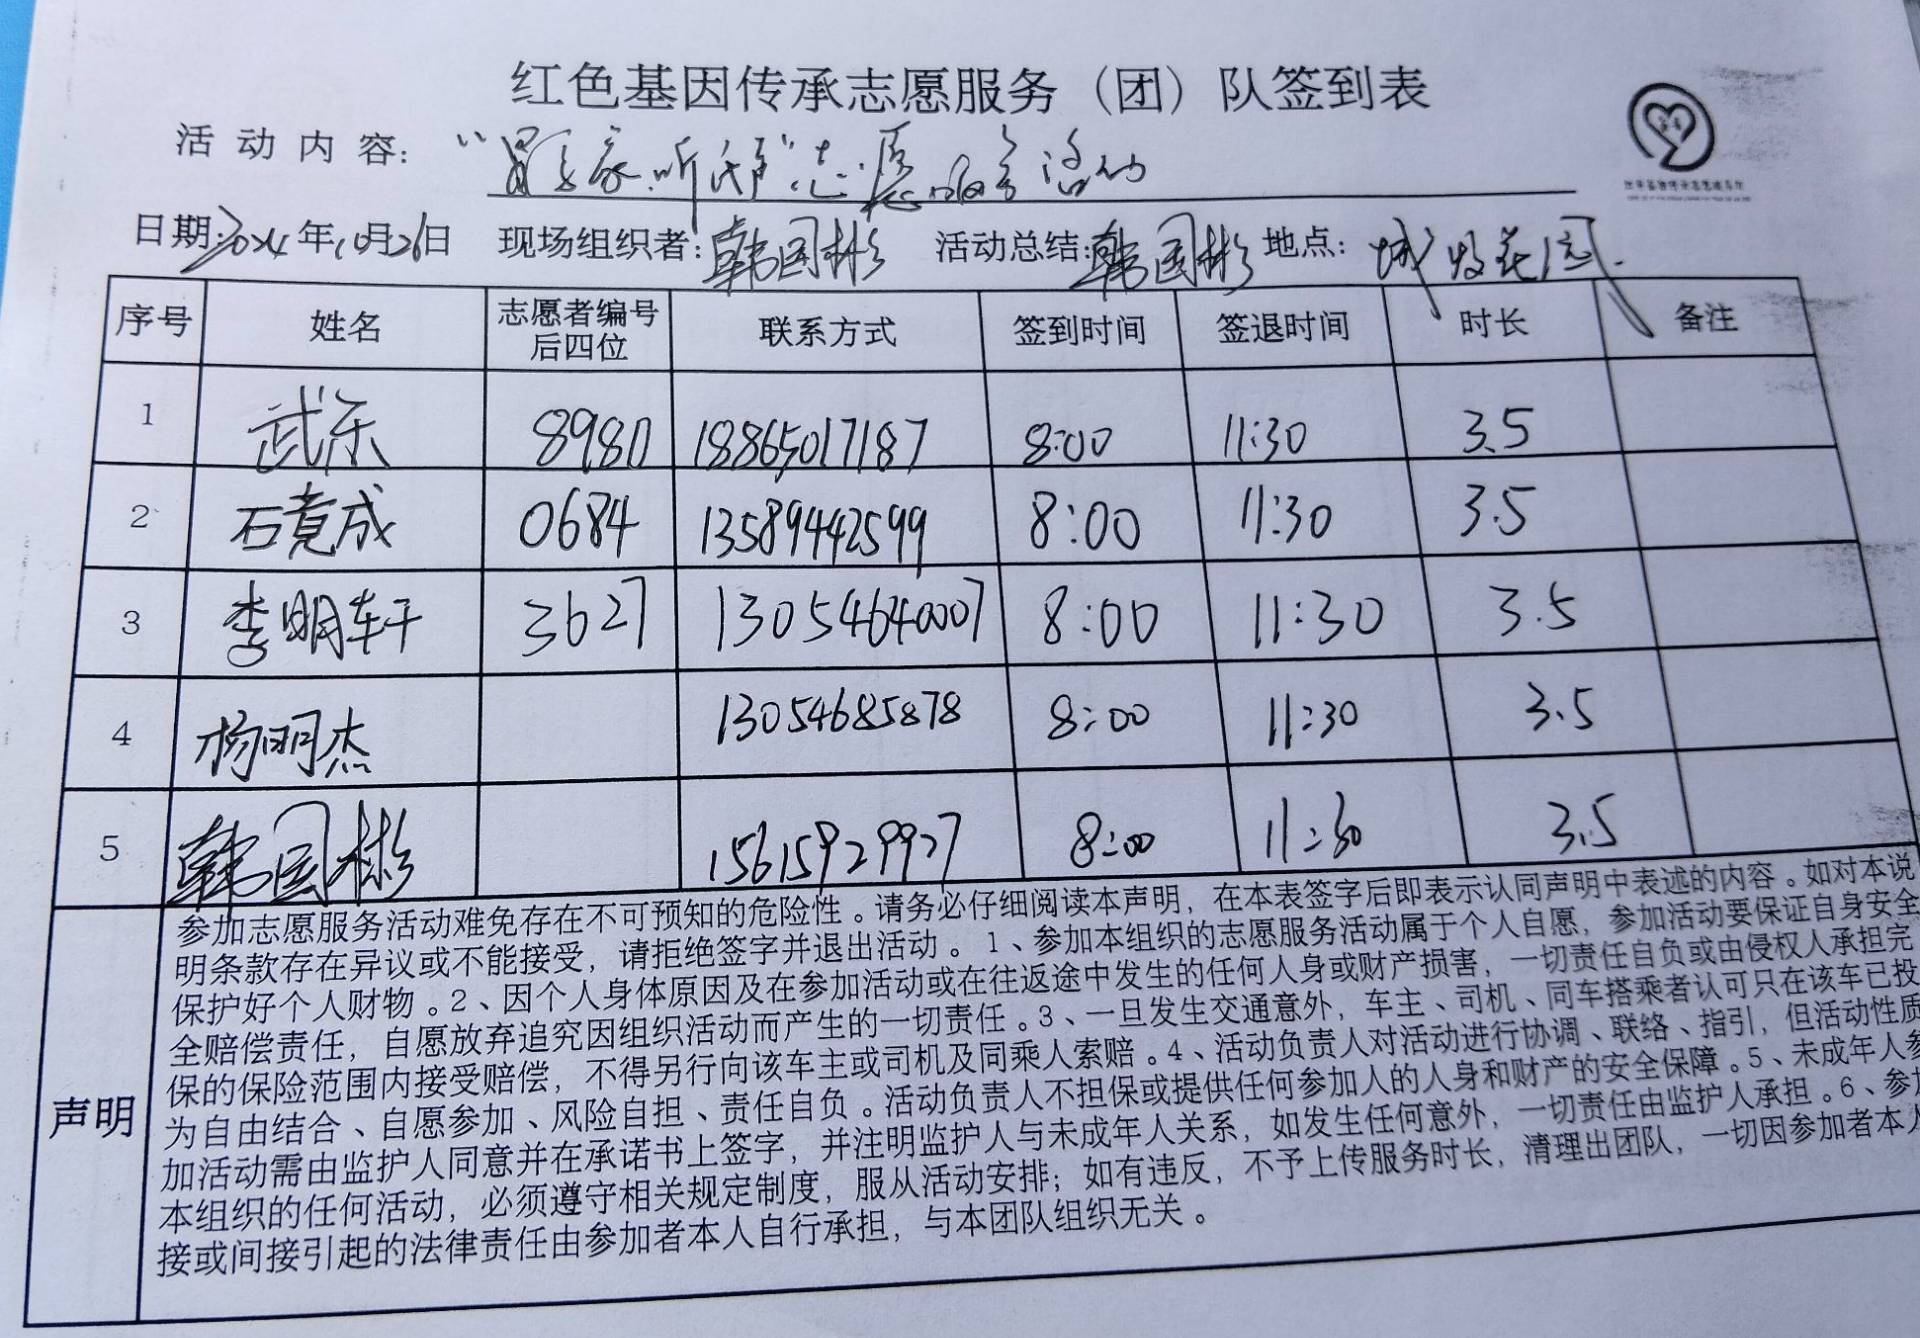 红色基因传承志愿服务（团）队签到表
活动内容：“ 家听 ”志愿服务活动
日期：2024年10月26日 现场组织者：韩国彬 活动总结：韩国彬 地点：城投花园
序号 姓名 志愿者编号后四位 联系方式 签到时间 签退时间 时长 备注
1 武乐 8980 18865017187 8:00 11:30 3.5
2 石竟成 0684 13589442599 8:00 11:30 3.5
3 李明轩 3627 13054640007 8:00 11:30 3.5
4 杨明杰 13054685878 8:00 11:30 3.5
5 韩国彬 15615929927 8:00 11:30 3.5
声明
参加志愿服务活动难免存在不可预知的危险性。请务必仔细阅读本声明，在本表签字后即表示认同声明中表述的内容。如对本说
明条款存在异议或不能接受，请拒绝签字并退出活动。1、参加本组织的志愿服务活动属于个人自愿，参加活动要保证自身安全
保护好个人财物。2、因个人身体原因及在参加活动或在往返途中发生的任何人身或财产损害，一切责任自负或由侵权人承担完
全赔偿责任，自愿放弃追究因组织活动而产生的一切责任。3、一旦发生交通意外，车主、司机、同车搭乘者认可只在该车已投
保的保险范围内接受赔偿，不得另行向该车主或司机及同乘人索赔。4、活动负责人对活动进行协调、联络、指引，但活动性质
为自由结合、自愿参加、风险自担、责任自负。活动负责人不担保或提供任何参加人的人身和财产的安全保障。5、未成年人参
加活动需由监护人同意并在承诺书上签字，并注明监护人与未成年人关系，如发生任何意外，一切责任由监护人承担。6、参加
本组织的任何活动，必须遵守相关规定制度，服从活动安排；如有违反，不予上传服务时长，清理出团队，一切因参加者本人
接或间接引起的法律责任由参加者本人自行承担，与本团队组织无关。